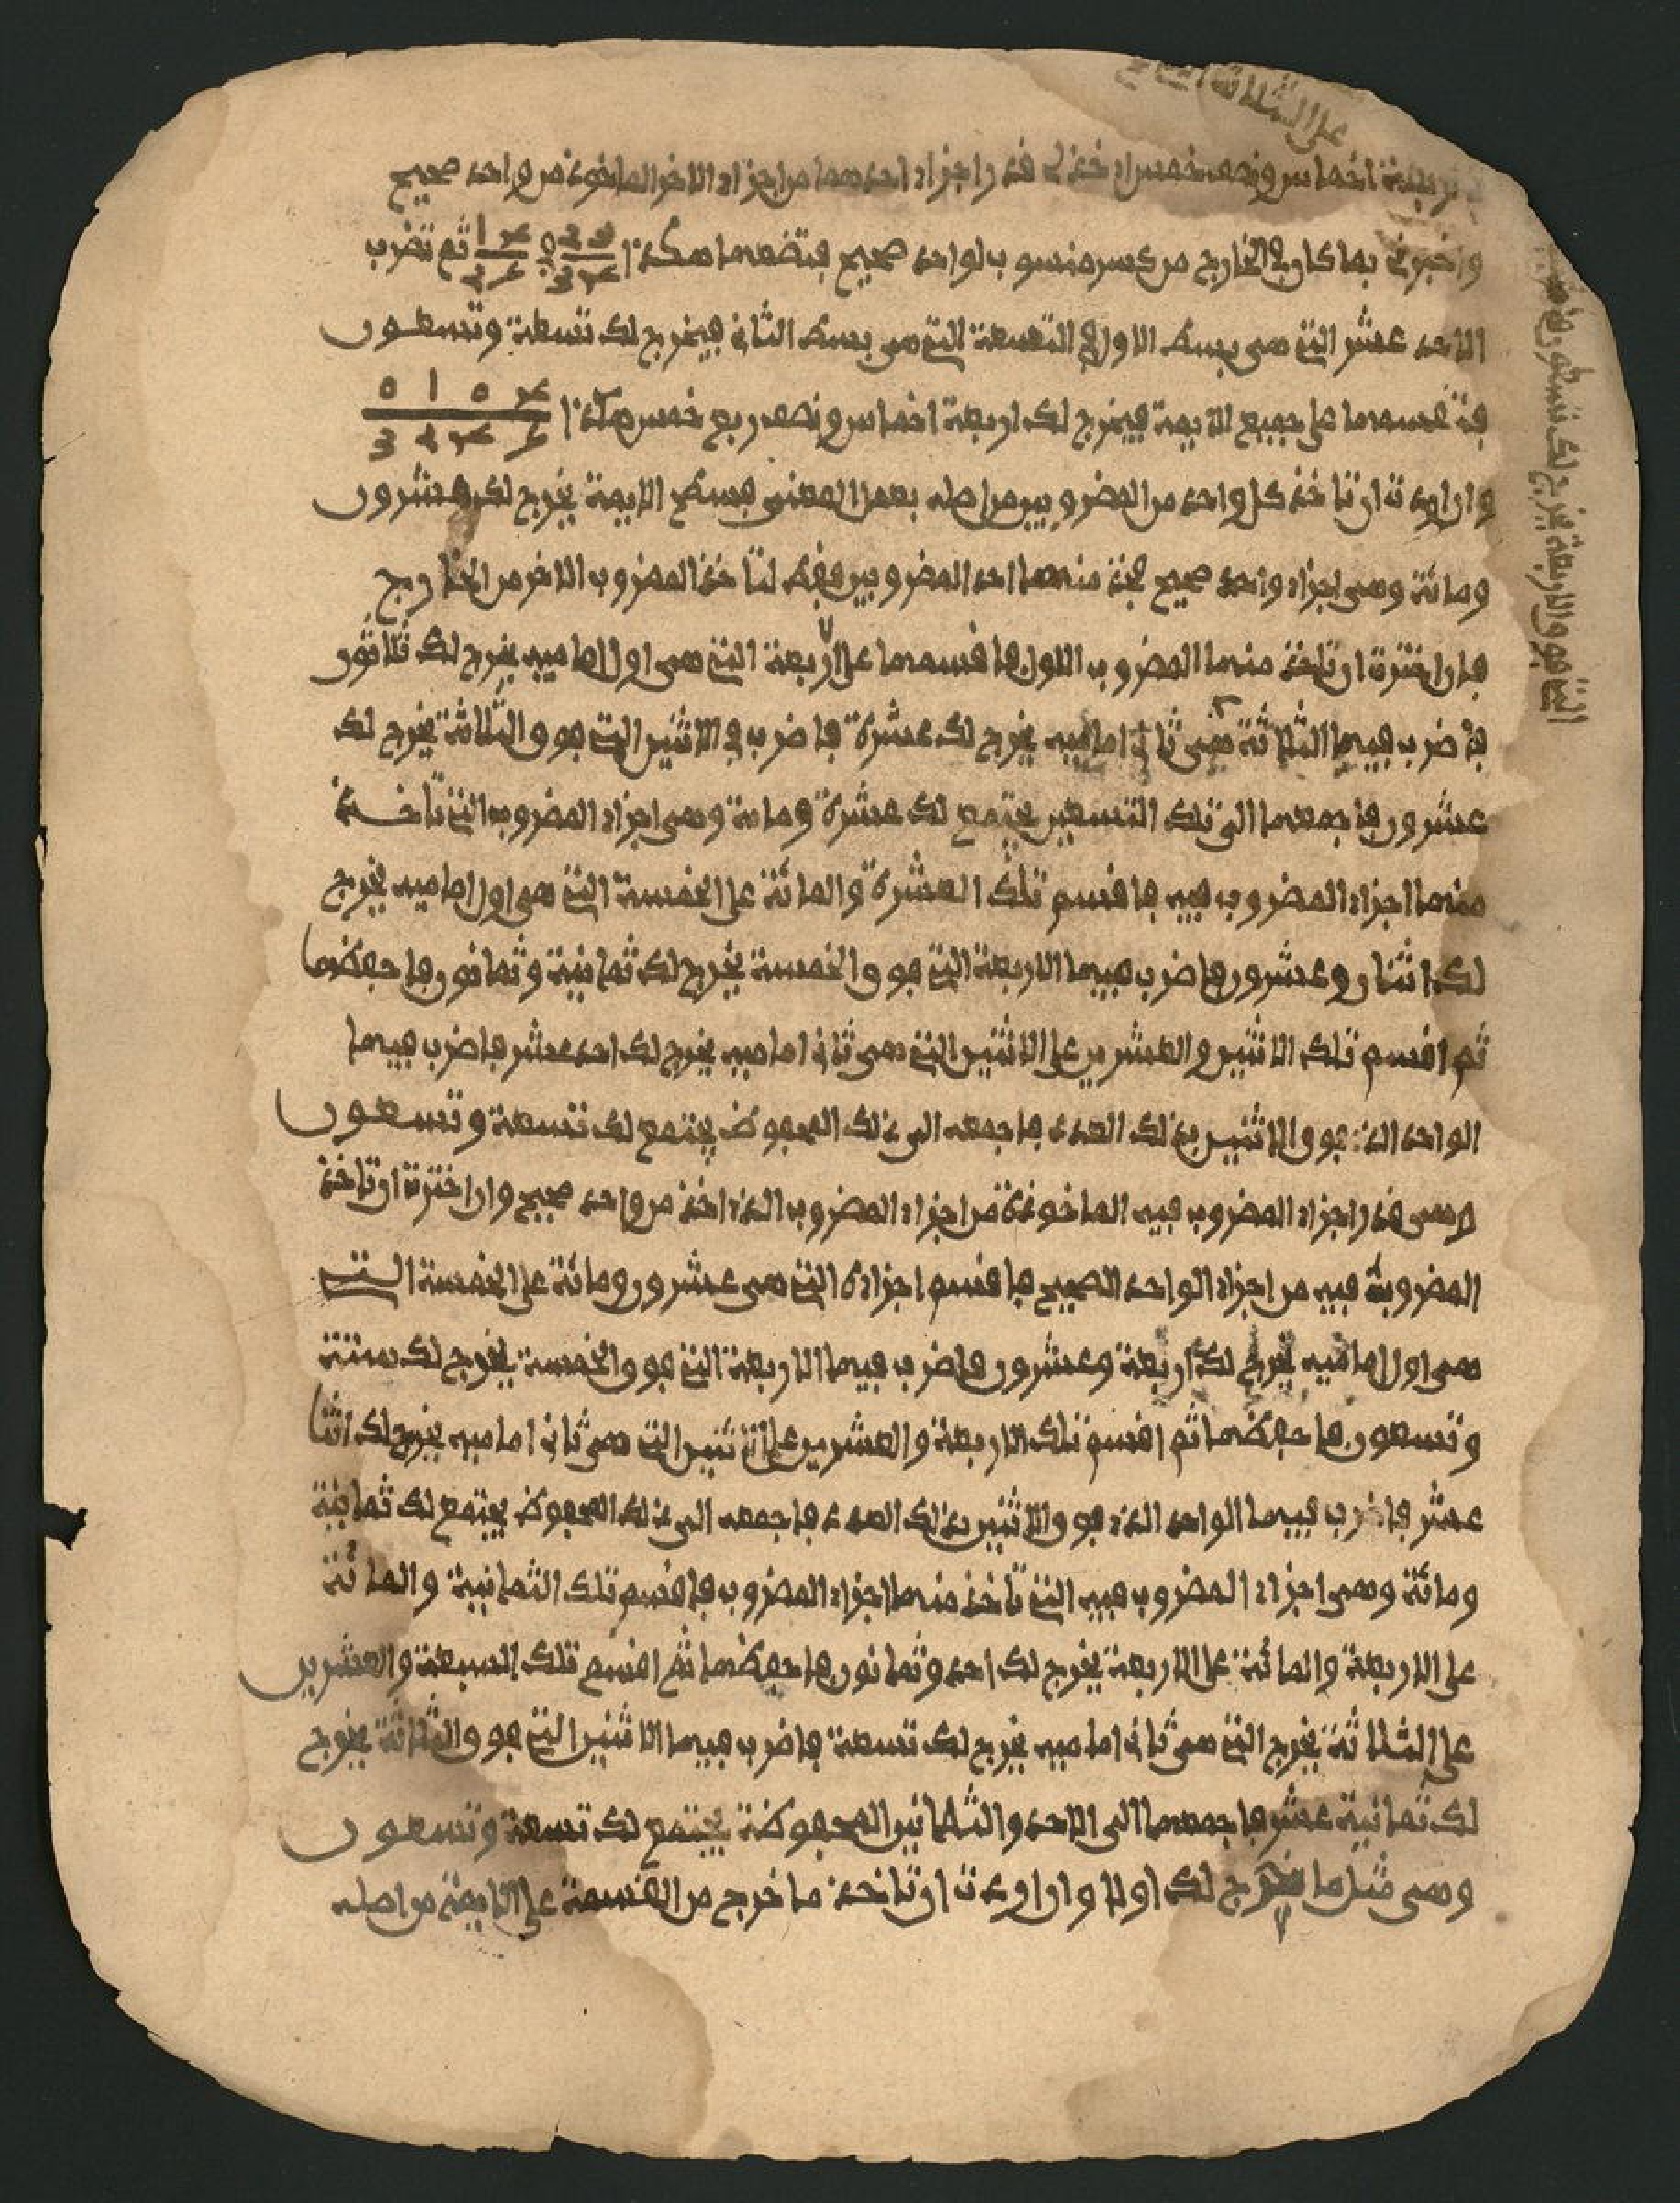 على الثلاثة
اربعة اخماس ونصف خمس اذ خذ لي قدر اجزاء احدهما من اجزاء الاخر الماخوذ من واحد صحيح
واخبرني بما كان في الخارج من كسر منسوب لواحد صحيح فتضعهما هكذا ثم تضرب
الاحد عشر التي هي بسط الاول في التسعة التي هي بسط الثاني فيخرج لك تسعة وتسعون
فتقسمها على جميع الايمة فيخرج لك اربعة اخماس ونصف ربع خمس هكذا
وان اردت ان تاخذ كل واحد من المضروبين من اصله بعمل المعنى فسطح الايمة يخرج لك عشرون
ومائة وهي اجزاء واحد صحيح فخذ منها احد المضروبين فقط لتاخذ المضروب الاخر من الخارج
فان اخترت ان تاخذ منها المضروب الاول فاقسمها على الاربعة التي هي اول اماميه يخرج لك ثلاثون
فاضرب فيها الثلاثة هي ثاني اماميه يخرج لك عشرة فاضرب في الاثنين التي فوق الثلاثة يخرج لك
عشرون فاجمعها الى تلك التسعين يجتمع لك عشرة ومائة وهي اجزاء المضروب التي تاخذ
منها اجزاء المضروب فيه فاقسم تلك العشرة والمائة على الخمسة التي هي اول اماميه يخرج
لك اثنان وعشرون فاضرب فيها الاربعة التي فوق الخمسة يخرج لك ثمانية وثمانون فاحفظها
ثم اقسم تلك الاثنين والعشرين على الاثنين التي هي ثاني اماميه يخرج لك احد عشر فاضرب فيها
الواحد الذي فوق الاثنين بذلك العدد فاجمعه الى ذلك المحفوظ يجتمع لك تسعة وتسعون
وهي قدر اجزاء المضروب فيه الماخوذة من اجزاء المضروب الذي اخذ من واحد صحيح وان اخترت ان تاخذ
المضروب فيه من اجزاء الواحد الصحيح فاقسم اجزاءه التي هي عشرون ومائة على الخمسة التي
هي اول اماميه يخرج لك اربعة وعشرون فاضرب فيها الاربعة التي فوق الخمسة يخرج لك ستة
وتسعون فاحفظها ثم اقسم تلك الاربعة والعشرين على الاثنين التي هي ثاني اماميه يخرج لك اثنا
عشر فاضرب فيها الواحد الذي فوق الاثنين بذلك العدد فاجمعه الى ذلك المحفوظ يجتمع لك ثمانية
ومائة وهي اجزاء المضروب فيه التي تاخذ منها اجزاء المضروب فاقسم تلك الثمانية والمائة
على الاربعة والمائة على الاربعة يخرج لك احد وثمانون فاحفظها ثم اقسم تلك السبعة والعشرين
على الثلاثة يخرج التي هي ثاني اماميه يخرج لك تسعة فاضرب فيها الاثنين التي فوق الثلاثة يخرج
لك ثمانية عشر فاجمعها الى الاحد والثمانين المحفوظة يجتمع لك تسعة وتسعون
وهي مثل ما خرج لك اولا وان اردت ان تاخذ ما خرج من القسمة على الايمة من اصله
التي فوق الاربعة يخرج لك تسعون